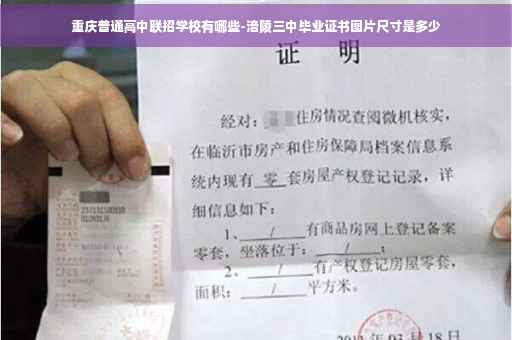 重庆普通高中联招学校有哪些-涪陵三中毕业证书图片尺寸是多少
证 明
经对：住房情况查阅微机核实，
在临沂市房产和住房保障局档案信息系
统内现有 零 套房屋产权登记记录，详
细信息如下：
1、 / 有商品房网上登记备案
零套，坐落位于： / ；
2、 / 有产权登记房屋零套，
面积： / 平方米。
年 03 月 18 日